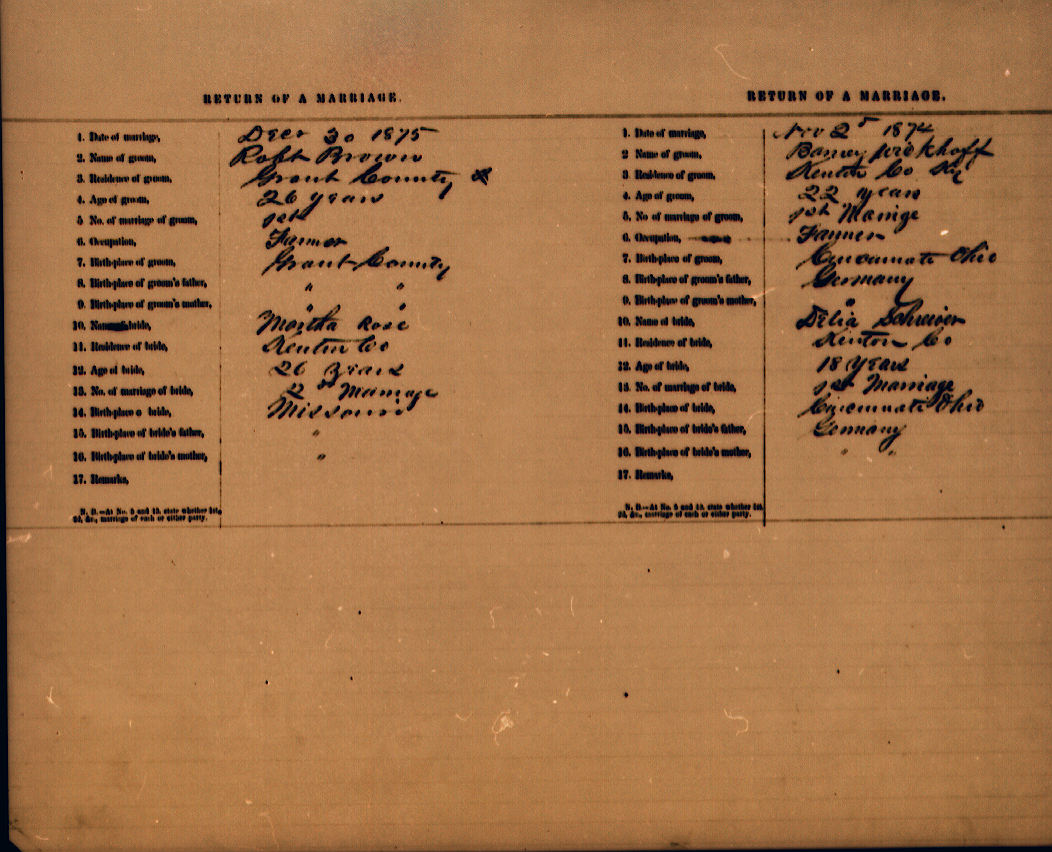 RETURN OF A MARRIAGE.
1. Date of marriage, Decr 30 1875
2. Name of groom, Robt Brown
3. Residence of groom, Grant County
4. Age of groom, 26 years
5 No. of marriage of groom, 1st
6. Occupation, Farmer
7. Birth-place of groom, Grant County
8. Birth-place of groom's father, " "
9. Birth-place of groom's mother, " "
10. Name of bride, Martha Rose
11. Residence of bride, Kenton Co
12. Age of bride, 26 years
13. No. of marriage of bride, 2d Marriage
14. Birth-place o bride, Missouri
15. Birth-place of bride's father, "
16. Birth-place of bride's mother, "
17. Remarks,
N. B.—At No. 5 and 13, state whether 1st,
2d, &c., marriage of each or either party.
RETURN OF A MARRIAGE.
1. Date of marriage, Nov 2d 1874
2 Name of groom, Barney
3 Residence of groom, Kenton Co Ky
4. Age of groom, 22 years
5. No of marriage of groom, 1st
6. Occupation, Farmer
7. Birth-place of groom, Cincinnati Ohio
8. Birth-place of groom's father, Germany
9. Birth-place of groom's mother, "
10. Name of bride, Delia
11. Residence of bride, Kenton Co
12. Age of bride, 18 Years
13. No. of marriage of bride, 1st Marriage
14. Birth-place of bride, Cincinnati Ohio
15. Birth-place of bride's father, Germany
16. Birth-place of bride's mother, " "
17. Remarks,
N. B.—At No. 5 and 13, state whether 1st,
2d, &c., marriage of each or either party.